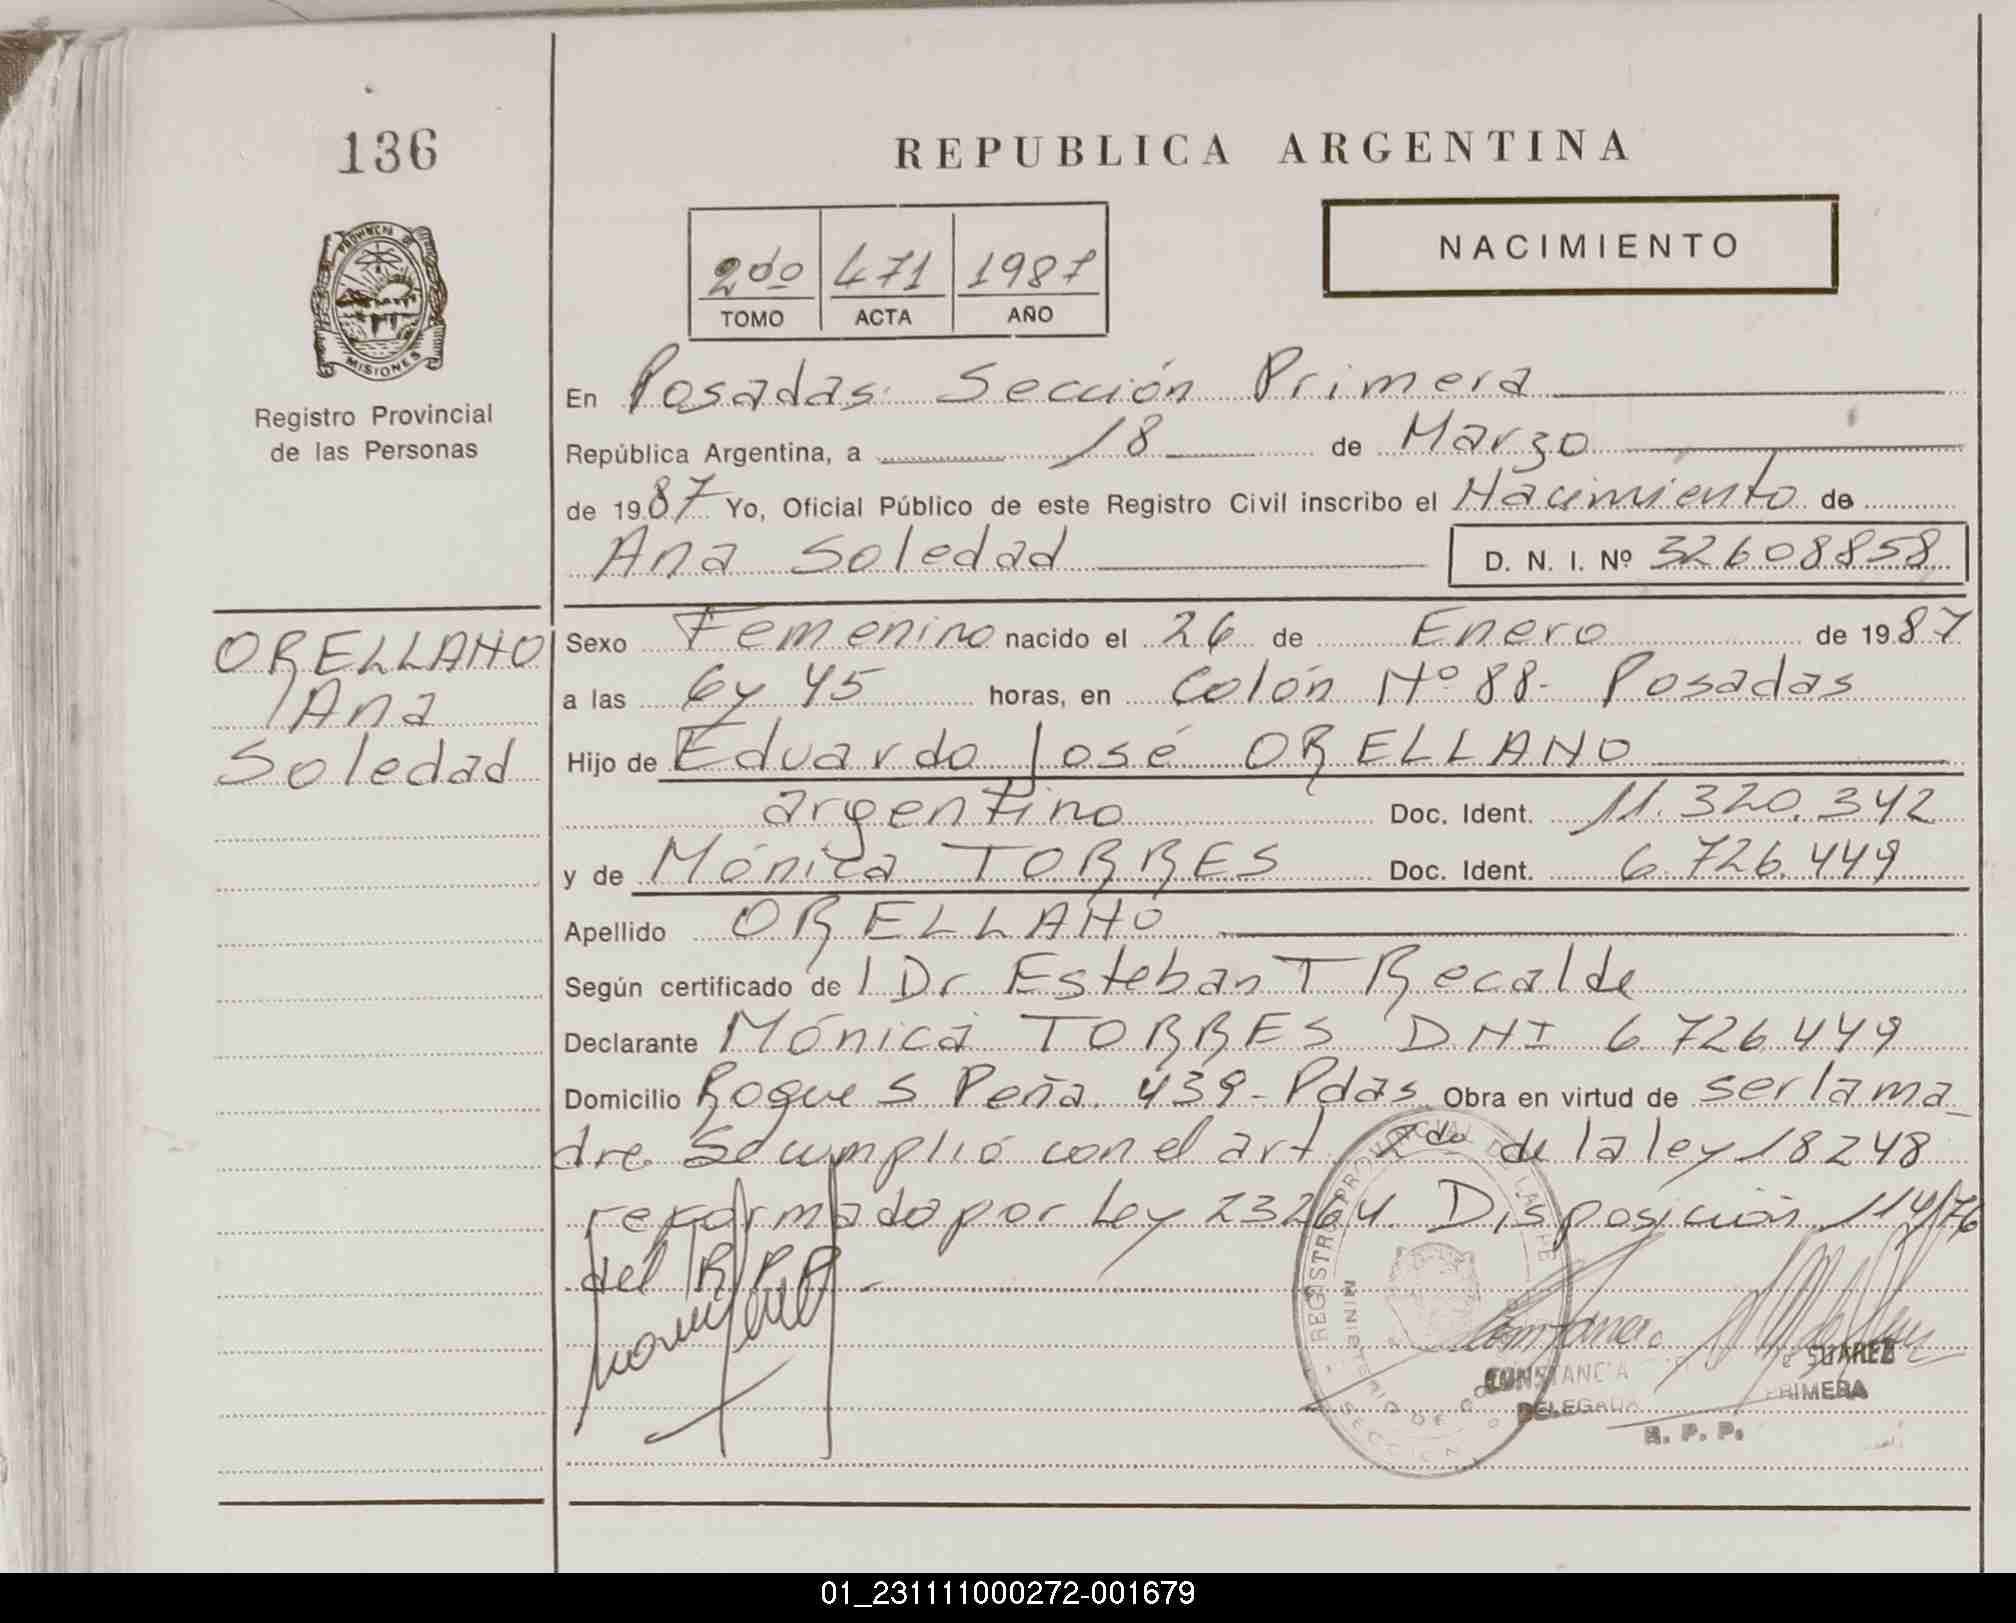 136
REPUBLICA ARGENTINA
NACIMIENTO
2do 471 1987
TOMO ACTA AÑO
PROVINCIA DE
MISIONES
Registro Provincial
de las Personas
En Posadas: Sección Primera
República Argentina, a 18 de Marzo
de 1987 Yo, Oficial Público de este Registro Civil inscribo el Nacimiento de
Ana Soledad D. N. I. Nº 32608858
ORELLANO
Ana
Soledad
Sexo Femenino nacido el 26 de Enero de 1987
a las 6 y 45 horas, en Colón Nº 88- Posadas
Hijo de Eduardo José ORELLANO
argentino Doc. Ident. 11.320.342
y de Mónica TORRES Doc. Ident. 6.726.449
Apellido ORELLANO
Según certificado de l Dr Esteban T Recalde
Declarante Mónica TORRES DNI 6.726.449
Domicilio Roque S Peña 439- Pdas Obra en virtud de ser la ma_
dre. Se cumplió con el art 2do de la ley 18248
reformado por Ley 23264. Disposición 114/76
del R.P.P. -
REGISTRO PROVINCIAL DE LAS PE
MINISTERIO DE GO
SECCION
CONSTANCIA
DELEGADA
SUAREZ
PRIMERA
R. P. P.
01_231111000272-001679